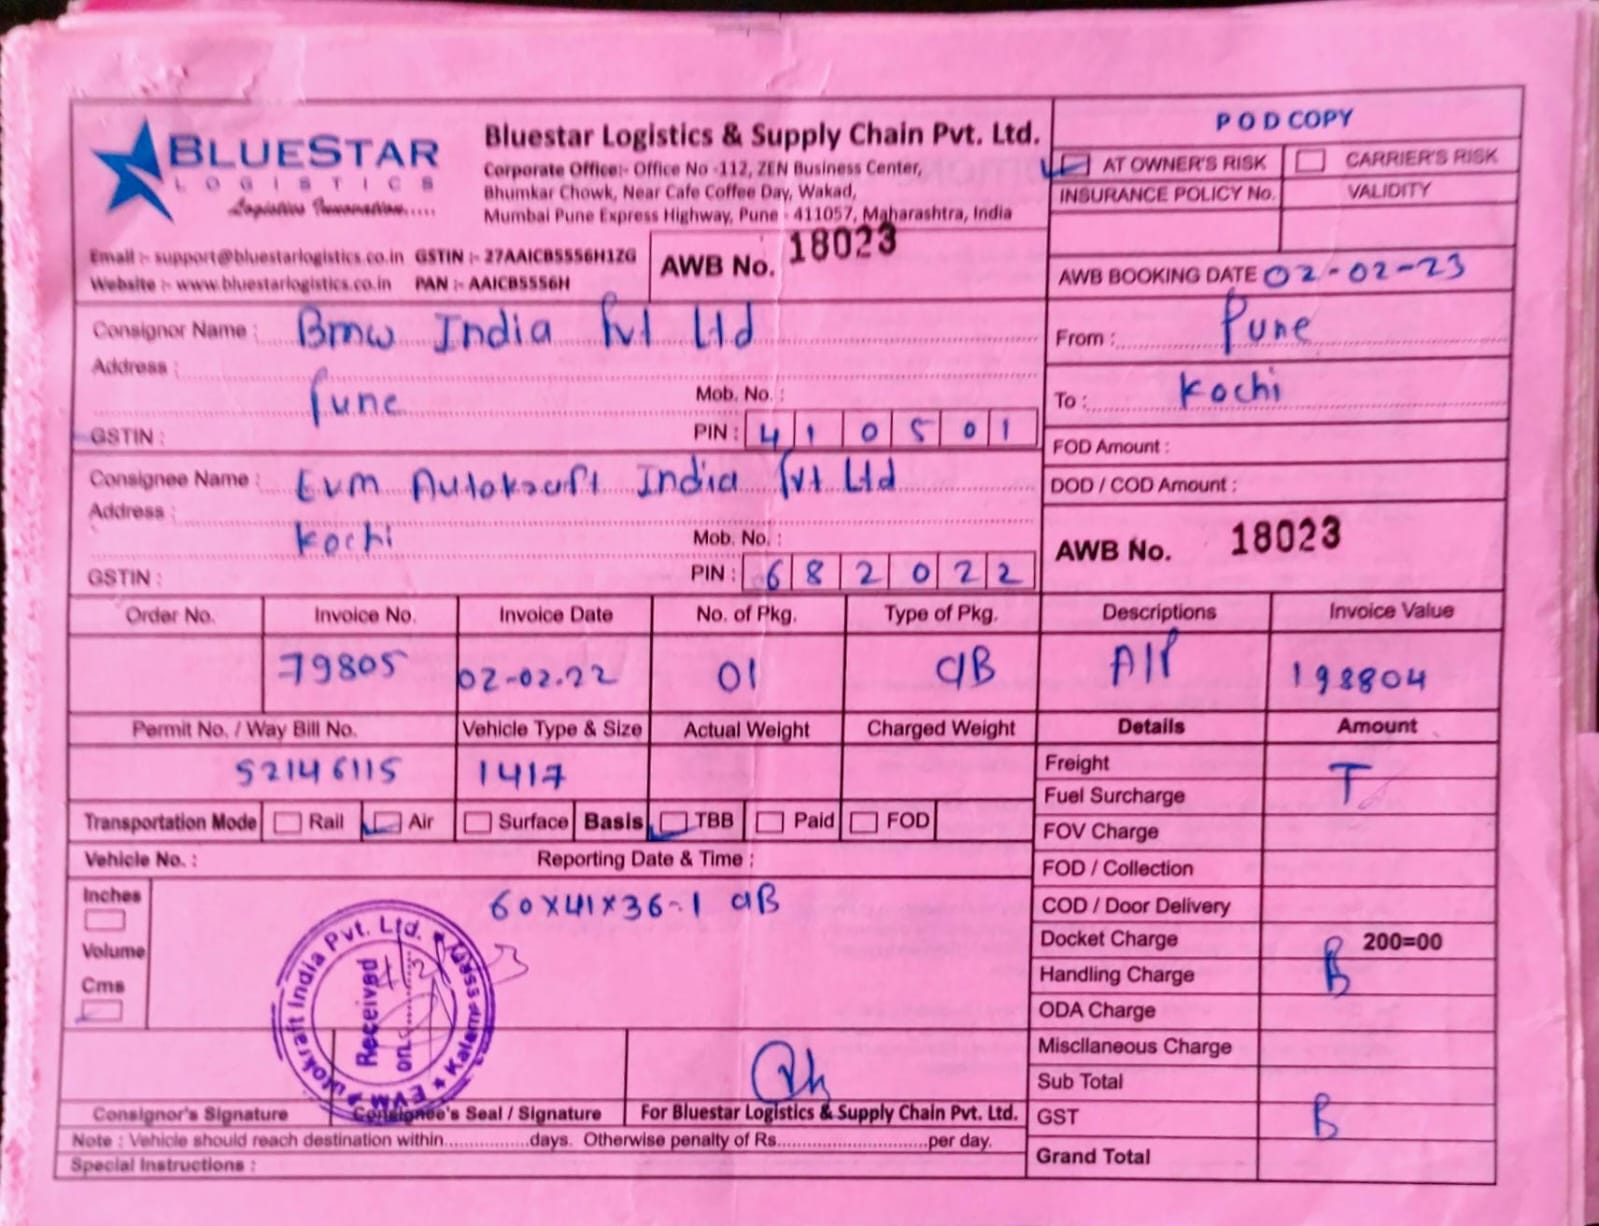 BLUESTAR
LOGISTICS
Logistics Innovation.....
Bluestar Logistics & Supply Chain Pvt. Ltd.
Corporate Office:- Office No -112, ZEN Business Center,
Bhumkar Chowk, Near Cafe Coffee Day, Wakad,
Mumbai Pune Express Highway, Pune - 411057, Maharashtra, India
Email :- support@bluestarlogistics.co.in GSTIN :- 27AAICB5556H1ZG
Website :- www.bluestarlogistics.co.in PAN :- AAICB5556H
AWB No. 18023
POD COPY
AT OWNER'S RISK CARRIER'S RISK
INSURANCE POLICY No. VALIDITY
AWB BOOKING DATE 02-02-23
Consignor Name : Bmw India Pvt Ltd
Address :
Pune
Mob. No. :
GSTIN : PIN : 410501
From : Pune
To : Kochi
FOD Amount :
DOD / COD Amount :
Consignee Name : Evm Autokraft India Pvt Ltd
Address :
Kochi
Mob. No. :
GSTIN : PIN : 682022
AWB No. 18023
Order No. Invoice No. Invoice Date No. of Pkg. Type of Pkg. Descriptions Invoice Value
79805 02-02-22 01 CIB A/P 198804
Permit No. / Way Bill No. Vehicle Type & Size Actual Weight Charged Weight Details Amount
52146115 1417
Freight T
Fuel Surcharge
Transportation Mode Rail Air Surface Basis TBB Paid FOD
FOV Charge
Vehicle No. : Reporting Date & Time :
FOD / Collection
Inches
60x41x36-1 CIB
COD / Door Delivery
Volume
Docket Charge 200=00
Cms
Handling Charge B
ODA Charge
EVM Autokraft India Pvt. Ltd.
Received
on
Miscllaneous Charge
Sub Total
Consignor's Signature Consignee's Seal / Signature For Bluestar Logistics & Supply Chain Pvt. Ltd.
GST B
Note : Vehicle should reach destination within...............days. Otherwise penalty of Rs...........................per day.
Grand Total
Special Instructions :